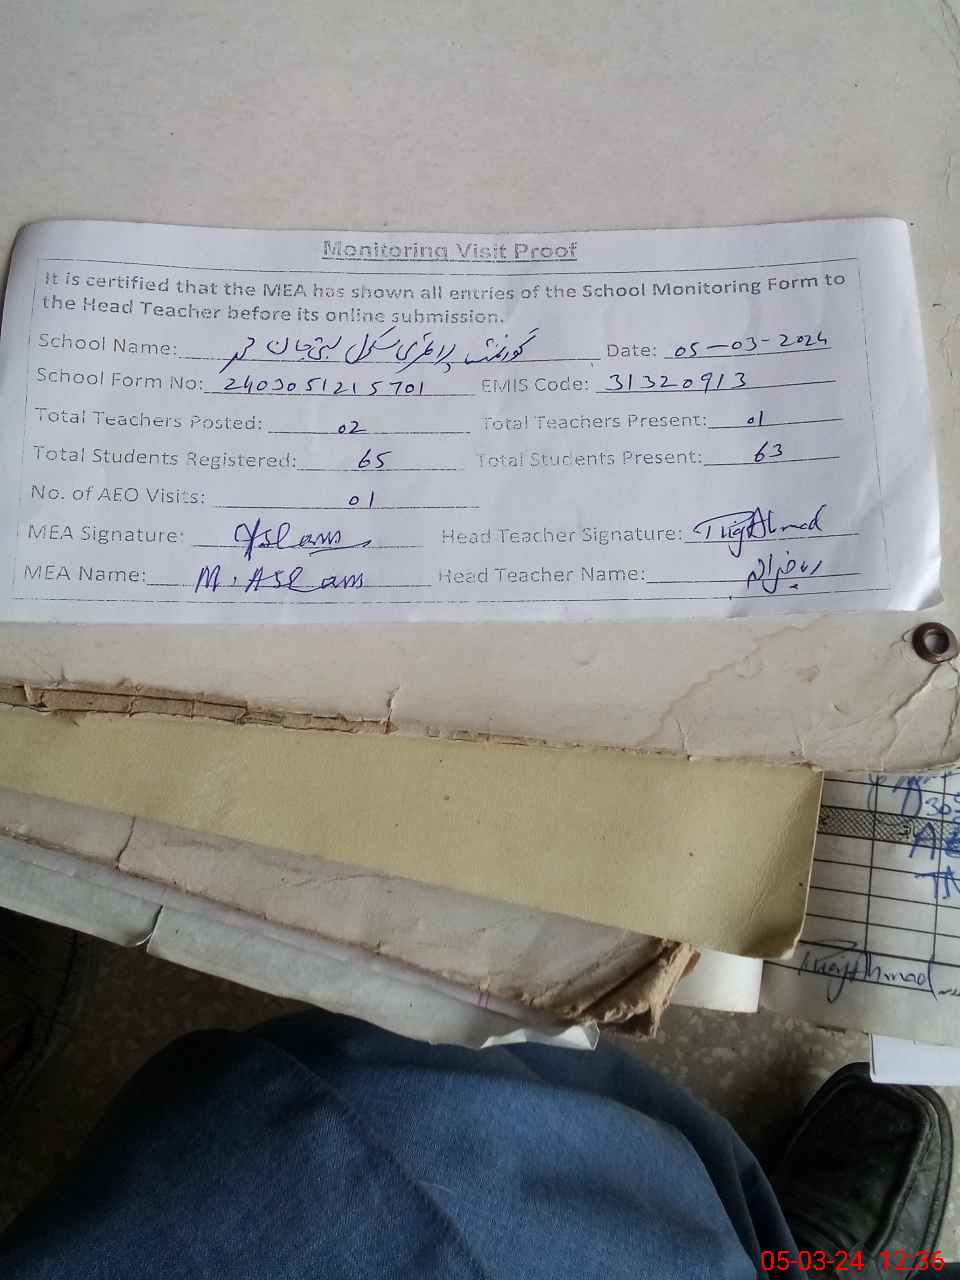 Monitoring Visit Proof
It is certified that the MEA has shown all entries of the School Monitoring Form to
the Head Teacher before its online submission.
School Name: گورنمنٹ پرائمری سکول بستی جان محمد Date: 05-03-2024
School Form No: 2403051215701 EMIS Code: 31320913
Total Teachers Posted: 02 Total Teachers Present: 01
Total Students Registered: 65 Total Students Present: 63
No. of AEO Visits: 01
MEA Signature: Aslam Head Teacher Signature: Ahmad
MEA Name: M. Aslam Head Teacher Name:
30
Ahmad
05-03-24 12:36